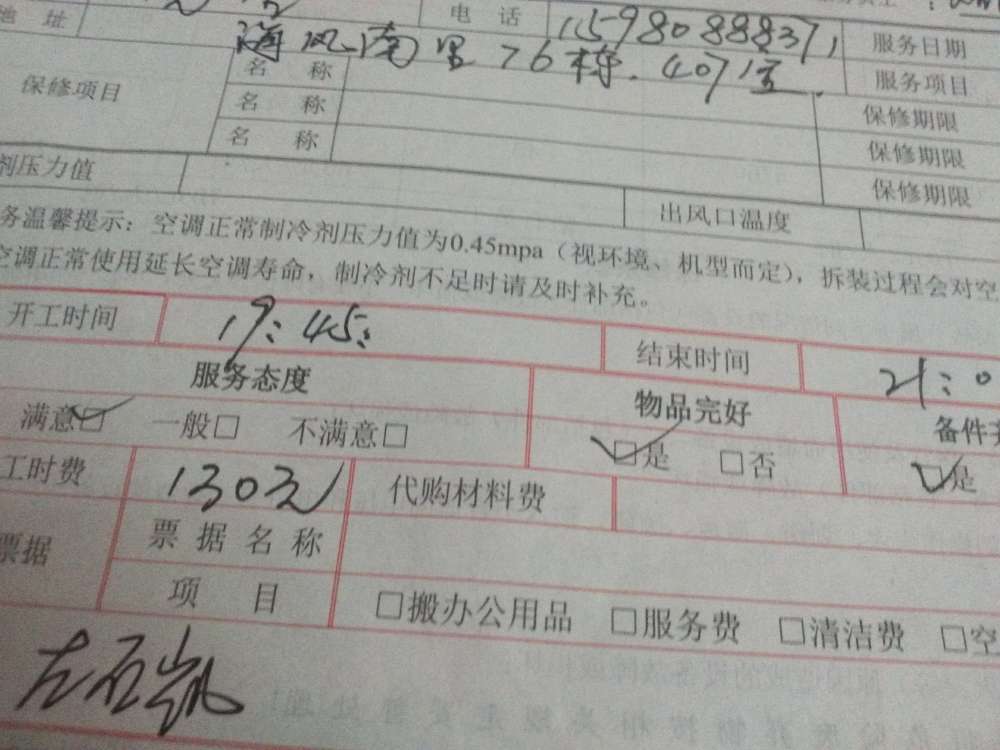 地 址 电 话 15980888371 服务日期
海风南里76栋.407室
保修项目 名 称 服务项目
名 称 保修期限
名 称 保修期限
保修期限
剂压力值 出风口温度
务温馨提示：空调正常制冷剂压力值为0.45mpa（视环境、机型而定），拆装过程会对空
空调正常使用延长空调寿命，制冷剂不足时请及时补充。
开工时间 19:45: 结束时间 21:0
服务态度 物品完好 备件齐
满意☑ 一般□ 不满意□ ☑是 □否 ☑是
工时费 130元 代购材料费
票据 票 据 名 称
项 目 □搬办公用品 □服务费 □清洁费 □空
左石凯